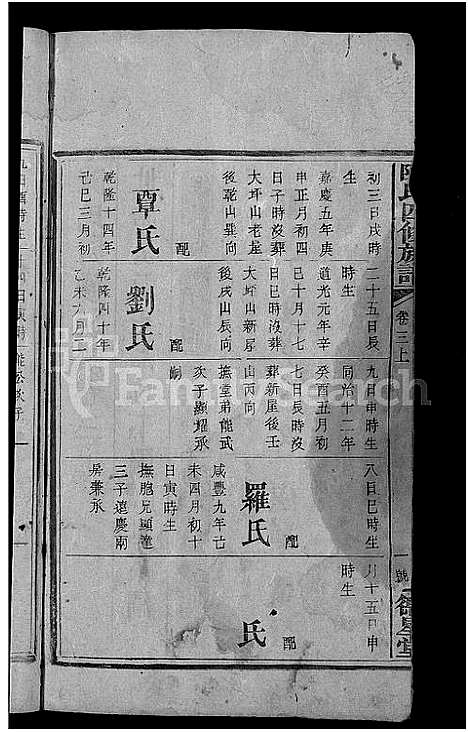 陳氏四修族譜
卷三上
初三日戌時
生
嘉慶五年庚
申正月初四
日子時沒葬
大坪山老屋
後乾山巽向
配
覃氏
乾隆十四年
己巳三月初
二十五日辰
時生
道光元年辛
巳十月十七
日巳時沒葬
大坪山新屋
後戌山辰向
配
劉氏
乾隆四十年
乙未六月二
九日申時生
同治十二年
癸酉五月初
七日辰時沒
葬新屋後壬
山丙向
撫堂弟能武
次子顯耀承
嗣
八日巳時生
配
羅氏
咸豐九年己
未四月初十
日寅時生
撫胞兄顯達
三子遠慶兩
房兼承
月十五日申
時生
配
氏
FamilySearch